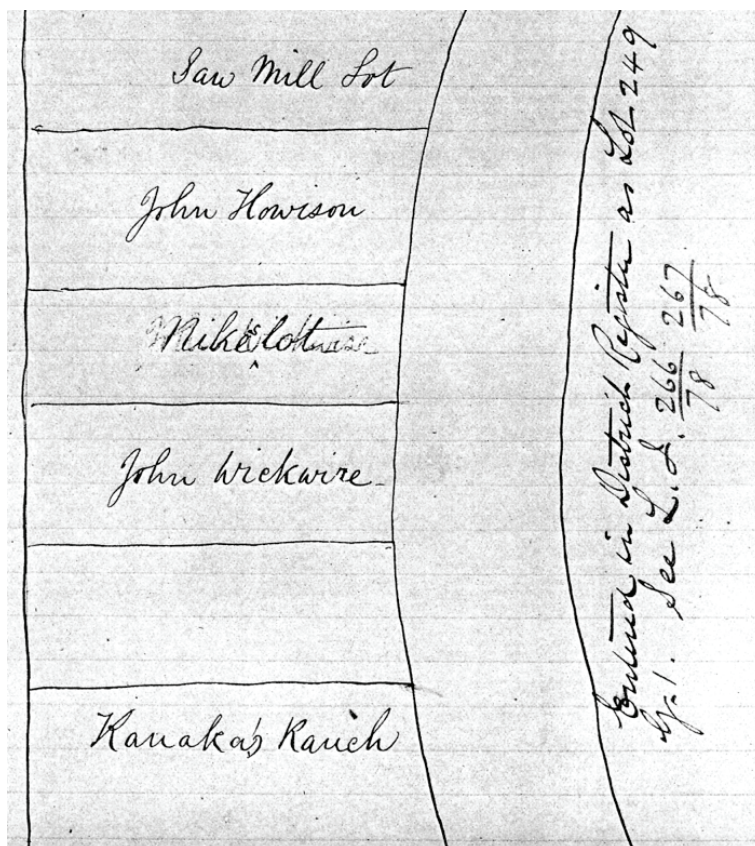 Saw Mill Lot
John Howison
Mike
John Wickwire
Kanaka's Ranch
Entered in District Register as Lot 249
G. 1. See L. S. 266/78 267/78